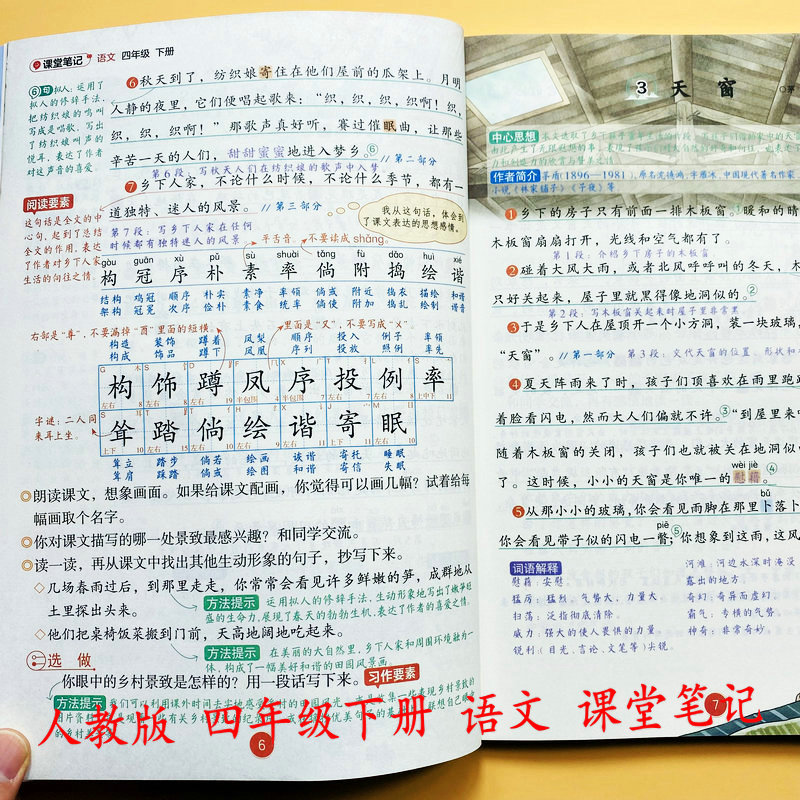 课堂笔记 语文 四年级 下册
⑥秋天到了，纺织娘寄住在他们屋前的瓜架上。月明
人静的夜里，它们便唱起歌来：“织，织，织，织啊！织，
织，织，织啊！”那歌声真好听，赛过催眠曲，让那些
辛苦一天的人们，甜甜蜜蜜地进入梦乡。⑥ //第二部分
第6段：写秋天人们在纺织娘的歌声中入梦
⑥句 拟人：运用了
拟人的修辞手法，
把纺织娘的鸣叫
写成是唱歌，写出
了纺织娘叫声的
悦耳，表达了作者
对这声音的喜爱。
⑦乡下人家，不论什么时候，不论什么季节，都有一
道独特、迷人的风景。 //第三部分
第7段：写乡下人家在任何
时候都有独特迷人的风景
我从这句话，体会到
了课文表达的思想感情。
阅读要素
这句话是全文的中
心句，起到了总结
全文的作用，表达
了作者对乡下人家
生活的向往之情。
平舌音，不要读成shàng。
gòu guān xù pǔ sù shuài tǎng fù dǎo huì xié
构 冠 序 朴 素 率 倘 附 捣 绘 谐
结构 鸡冠 顺序 朴实 素净 率领 倘或 附近 捣衣 描绘 和谐
构思 花冠 次序 俭朴 素食 统率 倘使 附加 捣乱 绘制 谐音
右部是“尊”，不要漏掉“酉”里面的短横。
里面是“又”，不要写成“乂”。
构造 装饰 蹲着 凤梨 顺序 投入 例子 率领
构成 饰品 蹲下 凤凰 序列 投放 照例 率先
构 饰 蹲 凤 序 投 例 率
耸 踏 倘 绘 谐 寄 眠
字谜：二人同
来耳上坐。
耸立 踏步 倘若 绘画 诙谐 寄托 睡眠
耸肩 踩踏 倘或 绘图 和谐 寄信 失眠
朗读课文，想象画面。如果给课文配画，你觉得可以画几幅？试着给每
幅画取个名字。
你对课文描写的哪一处景致最感兴趣？和同学交流。
读一读，再从课文中找出其他生动形象的句子，抄写下来。
◇几场春雨过后，到那里走走，你常常会看见许多鲜嫩的笋，成群地从
土里探出头来。
方法提示 运用拟人的修辞手法，生动形象地写出了嫩笋旺
盛的生命力，展现了春天的勃勃生机，表达了作者的喜爱之情。
◇他们把桌椅饭菜搬到门前，天高地阔地吃起来。
方法提示 在美丽的大自然里，乡下人家和周围环境融为一
体，构成了一幅美好和谐的田园风景画。
选做
你眼中的乡村景致是怎样的？用一段话写下来。
习作要素
方法提示
6
3 天窗
中心思想
作者简介 茅盾(1896—1981)，原名沈德鸿，字雁冰，中国现代著名作家
小说《林家铺子》《子夜》等。
①乡下的房子只有前面一排木板窗。①暖和的晴
木板窗扇扇打开，光线和空气都有了。
第1段：介绍乡下房子的木板窗
②碰着大风大雨，或者北风呼呼叫的冬天，木
只好关起来，屋子里就黑得像地洞似的。②
第2段：写木板窗关起来时屋子里非常黑
③于是乡下人在屋顶开一个小方洞，装一块玻璃，
“天窗”。 //第一部分 第3段：交代天窗的位置、形状和
④夏天阵雨来了时，孩子们顶喜欢在雨里跑跳
着脸看闪电，然而大人们偏就不许。③“到屋里来
随着木板窗的关闭，孩子们也就被关在地洞似的
wèi jiè
了。这时候，小小的天窗是你唯一的慰藉。④
bǔ
⑤从那小小的玻璃，你会看见雨脚在那里卜落卜
piē
你会看见带子似的闪电一瞥；⑤你想象到这雨，这风
词语解释
慰藉：安慰
猛厉：猛烈。气势大，力量大。
扫荡：泛指彻底清除。
威力：强大的使人畏惧的力量。
锐利：（目光、言论、文笔等）尖锐
河滩：河边水深时淹没
露出的地方。
奇幻：奇异而虚幻
霸气：专横的气势
神奇：非常奇妙
7
人教版 四年级下册 语文 课堂笔记